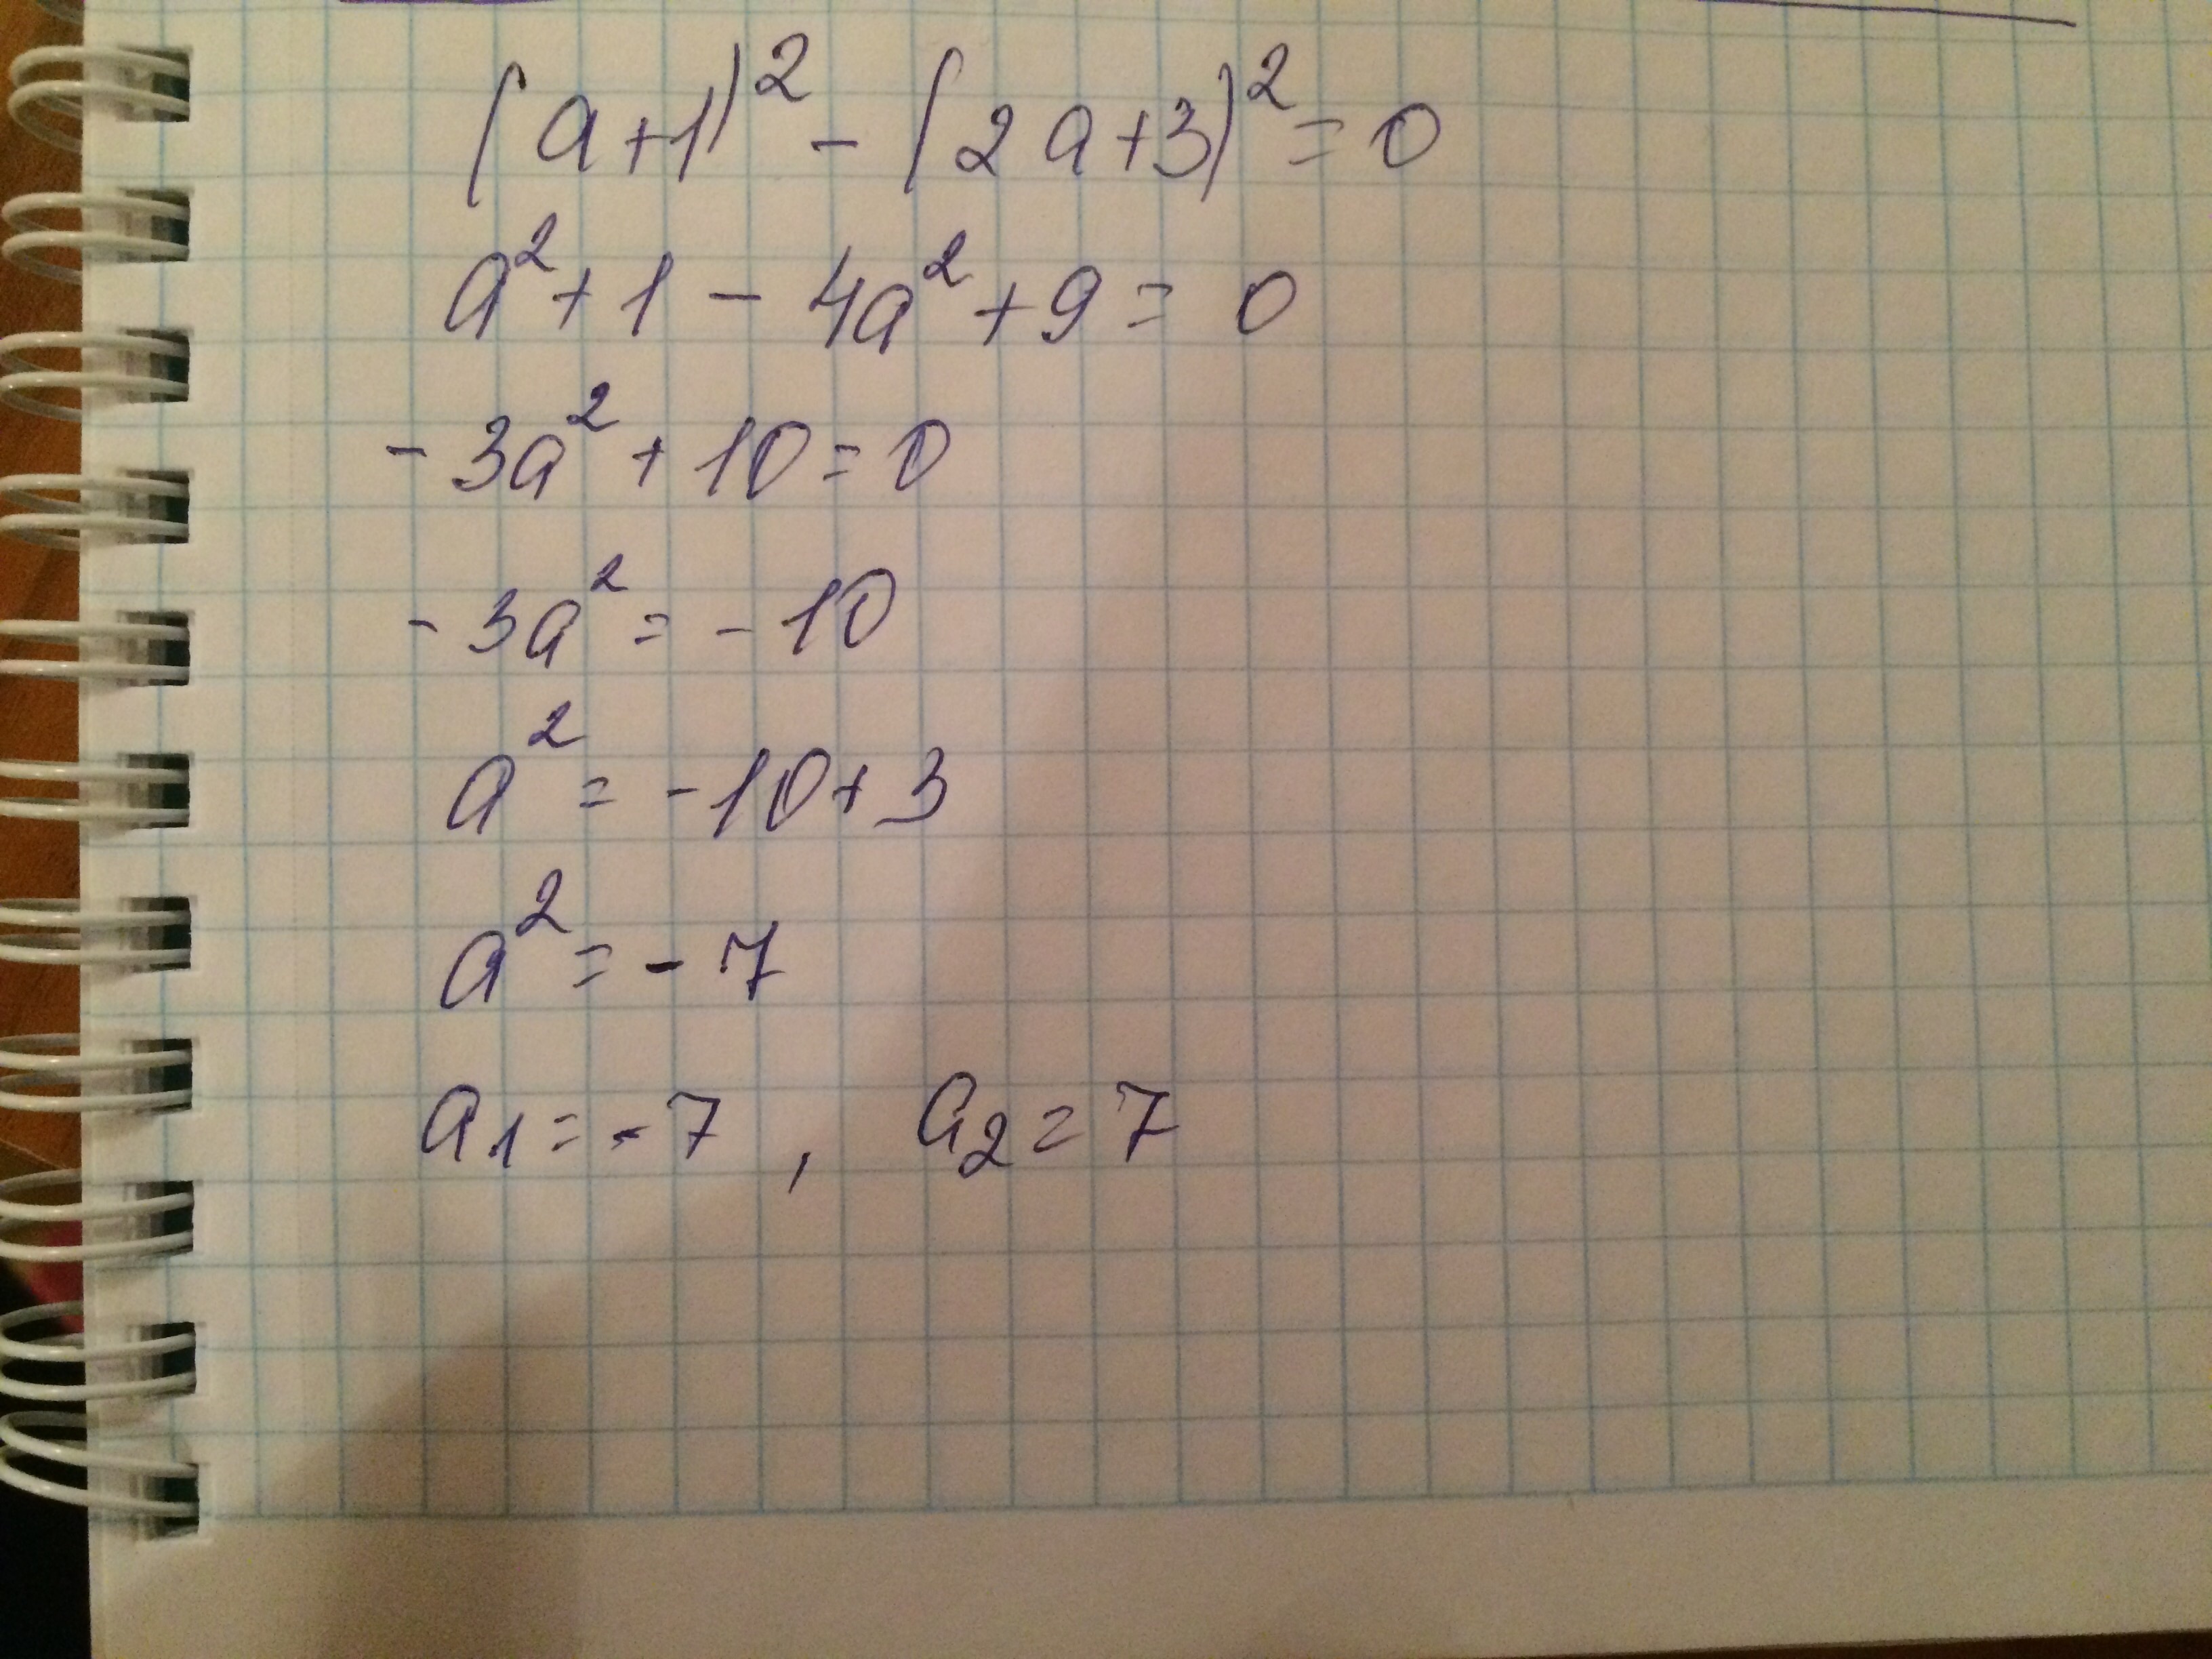 (a+1)² - (2a+3)² = 0
a² + 1 - 4a² + 9 = 0
- 3a² + 10 = 0
- 3a² = - 10
a² = - 10 + 3
a² = - 7
a₁ = - 7 , a₂ = 7